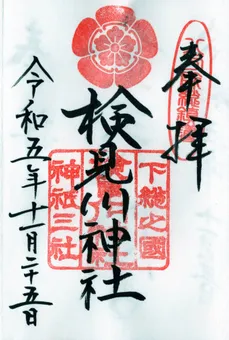 奉拝
下総之國
検見川神社
神祇三社
令和五年十一月二十五日